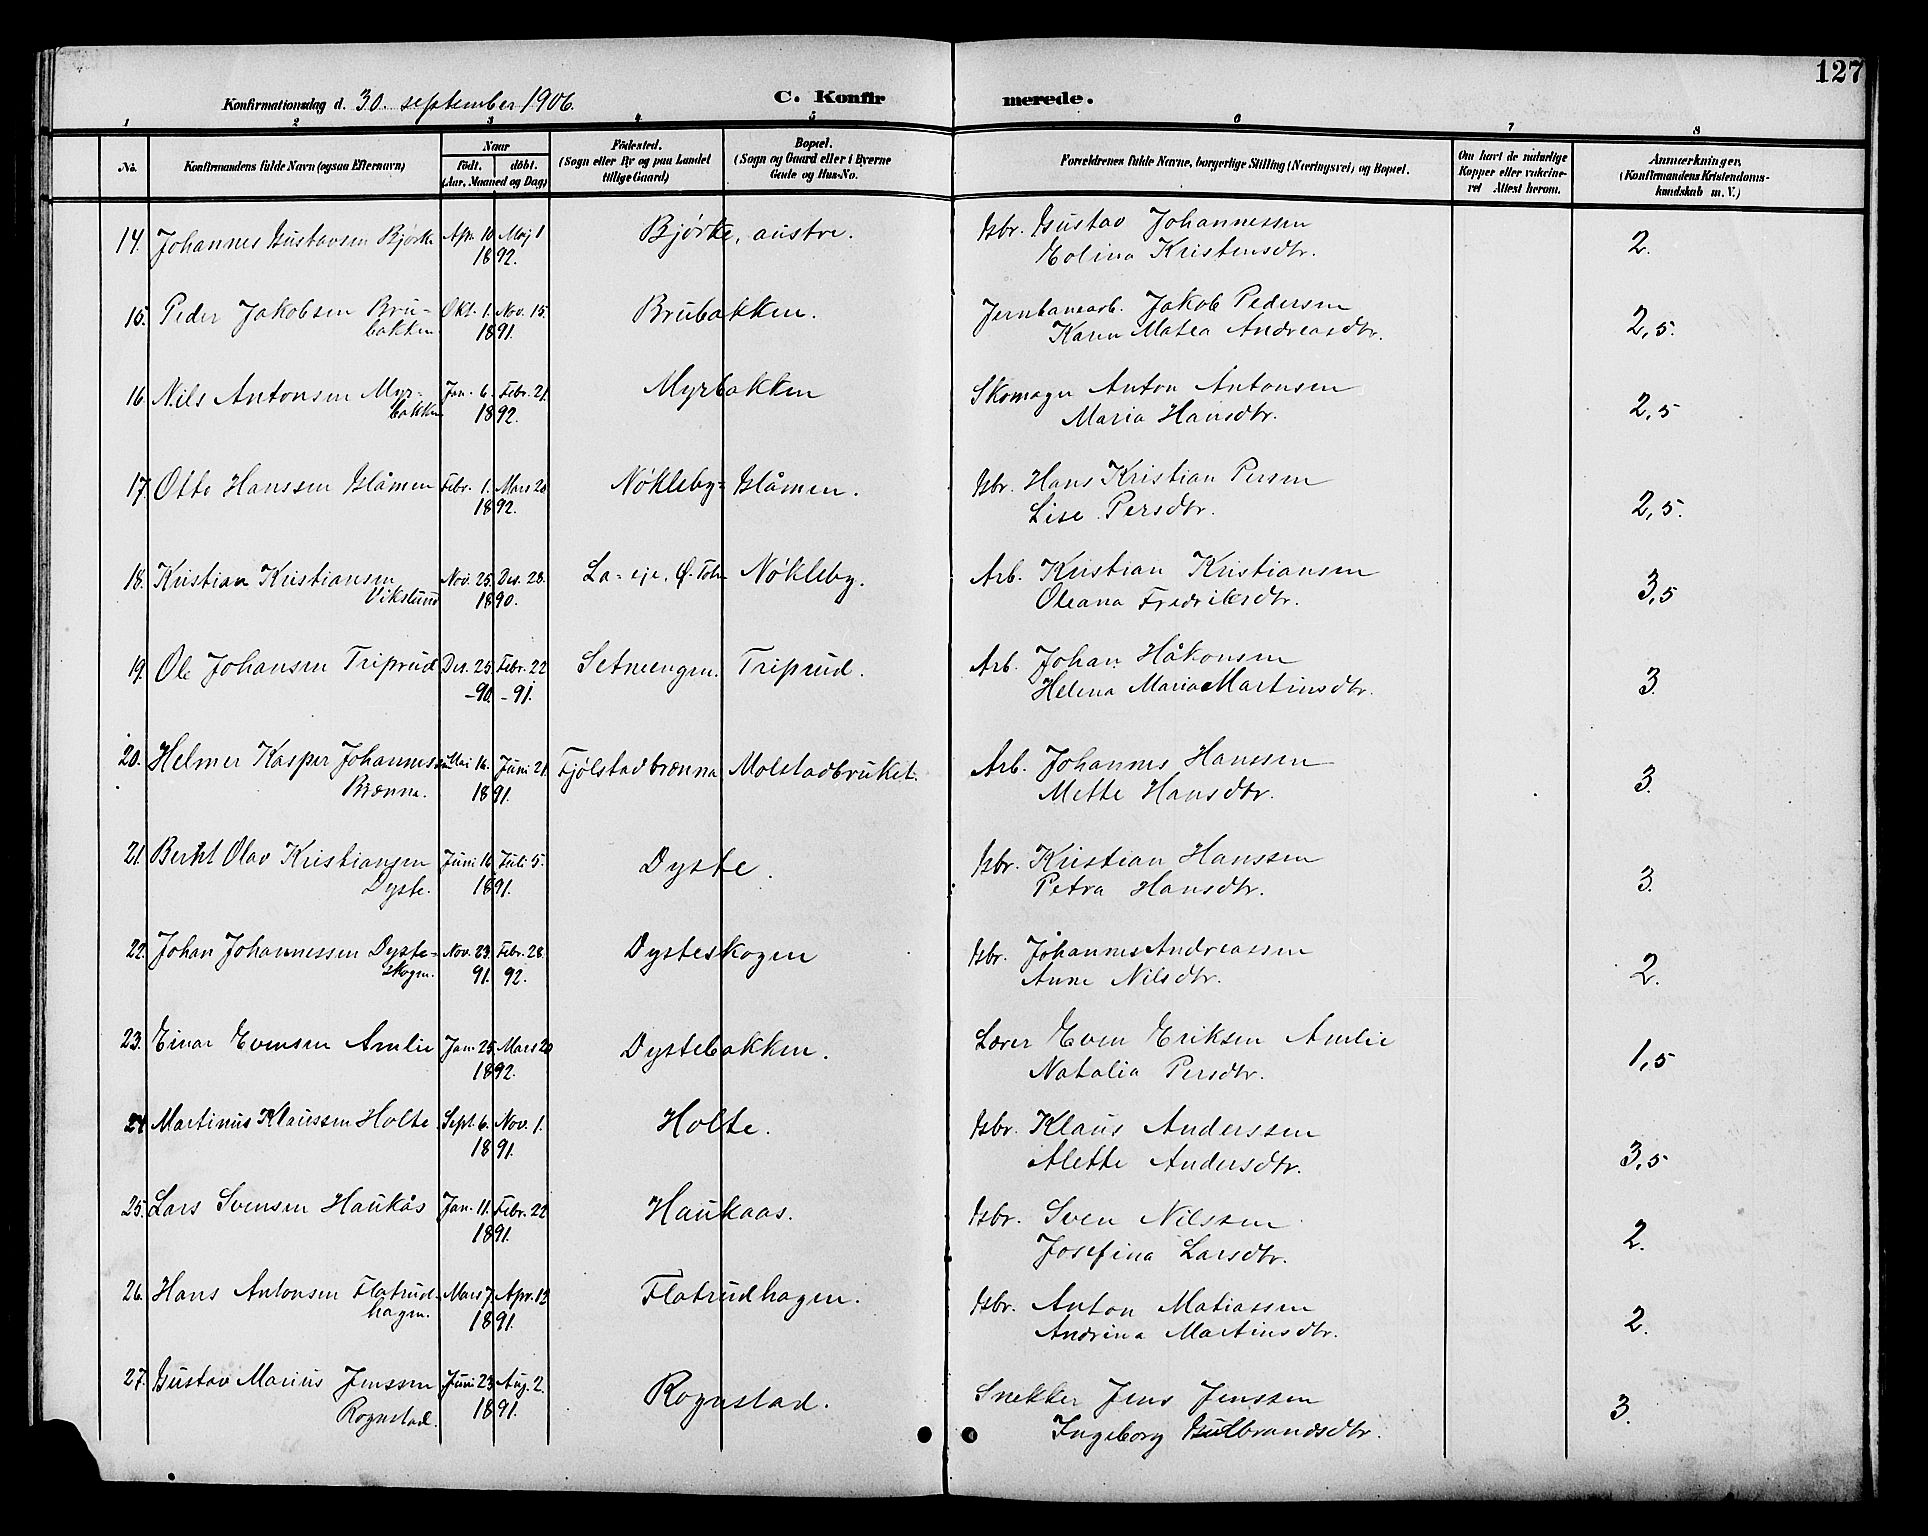 127
Konfirmationsdag d. 30. september 1906. C. Konfirmerede.
1 2 3 4 5 6 7 8
No. Konfirmandens fulde Navn (ogsaa Efternavn) Naar født. døbt. (Aar, Maaned og Dag) Fødested. (Sogn eller By og paa Landet tillige Gaard) Bopæl. (Sogn og Gaard eller i Byerne Gade og Hus-No. Forældrenes fulde Navne, borgerlige Stilling (Næringsvei) og Bopæl. Om havt de naturlige Kopper eller vakcineret Attest herom. Anmærkninger, (Konfirmandens Kristendomskundskab m. V.)
14. Johannes Gustavsen Bjørke Apr. 10 Maj 1 Bjørke, austre. Gbr. Gustav Johannessen
1892. Eolina Kristensdtr. 2.
15. Peder Jakobsen Bru- Okt. 1. Nov. 15. Brubakken. Jernbanearb. Jakob Pedersen
bakken 1891. Karen Matea Andreasdtr. 2,5.
16. Nils Antonsen Myr- Jan. 6. Febr. 21. Myrbakken Skomager Anton Antonsen
bakken 1892. Maria Hansdtr. 2,5
17. Otto Hanssen Glåmen Febr. 1. Mars 20 Nøkleby= Glåmen. Gbr. Hans Kristian Persen
1892. Lise Persdtr. 2,5.
18. Kristian Kristiansen Nov. 25. Des. 28. La- eje, Ø. Totn Nøkleby. Arb. Kristian Kristiansen
Vikslund 1890. Oleana Fredriksdtr. 3,5
19. Ole Johansen Triprud Des. 25. Febr. 22 Setneengen. Triprud. Arb. Johan Håkonsen
-90. -91. Helena Maria Martinsdtr. 3.
20. Helmer Kasper Johannessen Mai 16. Juni 21. Fjølstadbrænna Molstadbruket. Arb. Johannes Hanssen
Brænna. 1891. Mette Hansdtr. 3.
21. Bernt Olav Kristiansen Juni 10 Juli 5. Dyste. Gbr. Kristian Hanssen
Dyste. 1891. Petra Hansdtr. 3.
22. Johan Johannessen Dyste- Nov. 23. Febr. 28. Dysteskogen Gbr. Johannes Andreassen
skogen. 91. 92. Anne Nilsdtr. 2.
23. Einar Evensen Amlie Jan. 25. Mars 20 Dystebakken. Lærer Even Eriksen Amlie
1892. Natalia Persdtr. 1,5
24 Martinus Klaussen Holte Sept. 6. Nov. 1. Holte. Gbr. Klaus Anderssen
1891. Alette Andersdtr. 3,5
25. Lars Svensen Haukås Jan. 11. Febr. 22 Haukaas. Gbr. Sven Nilssen
1891. Josefina Larsdtr. 2.
26. Hans Antonsen Flatrud- Mars 7. Apr. 12 Flatrudhagen. Gbr. Anton Matiassen
hagen. 1891. Andrina Martinsdtr. 2.
27. Gustav Marius Jenssen Juni 23. Aug. 2. Rognstad. Snekker Jens Jenssen
Rognstad. 1891. Ingeborg Gulbrandsdtr. 3.